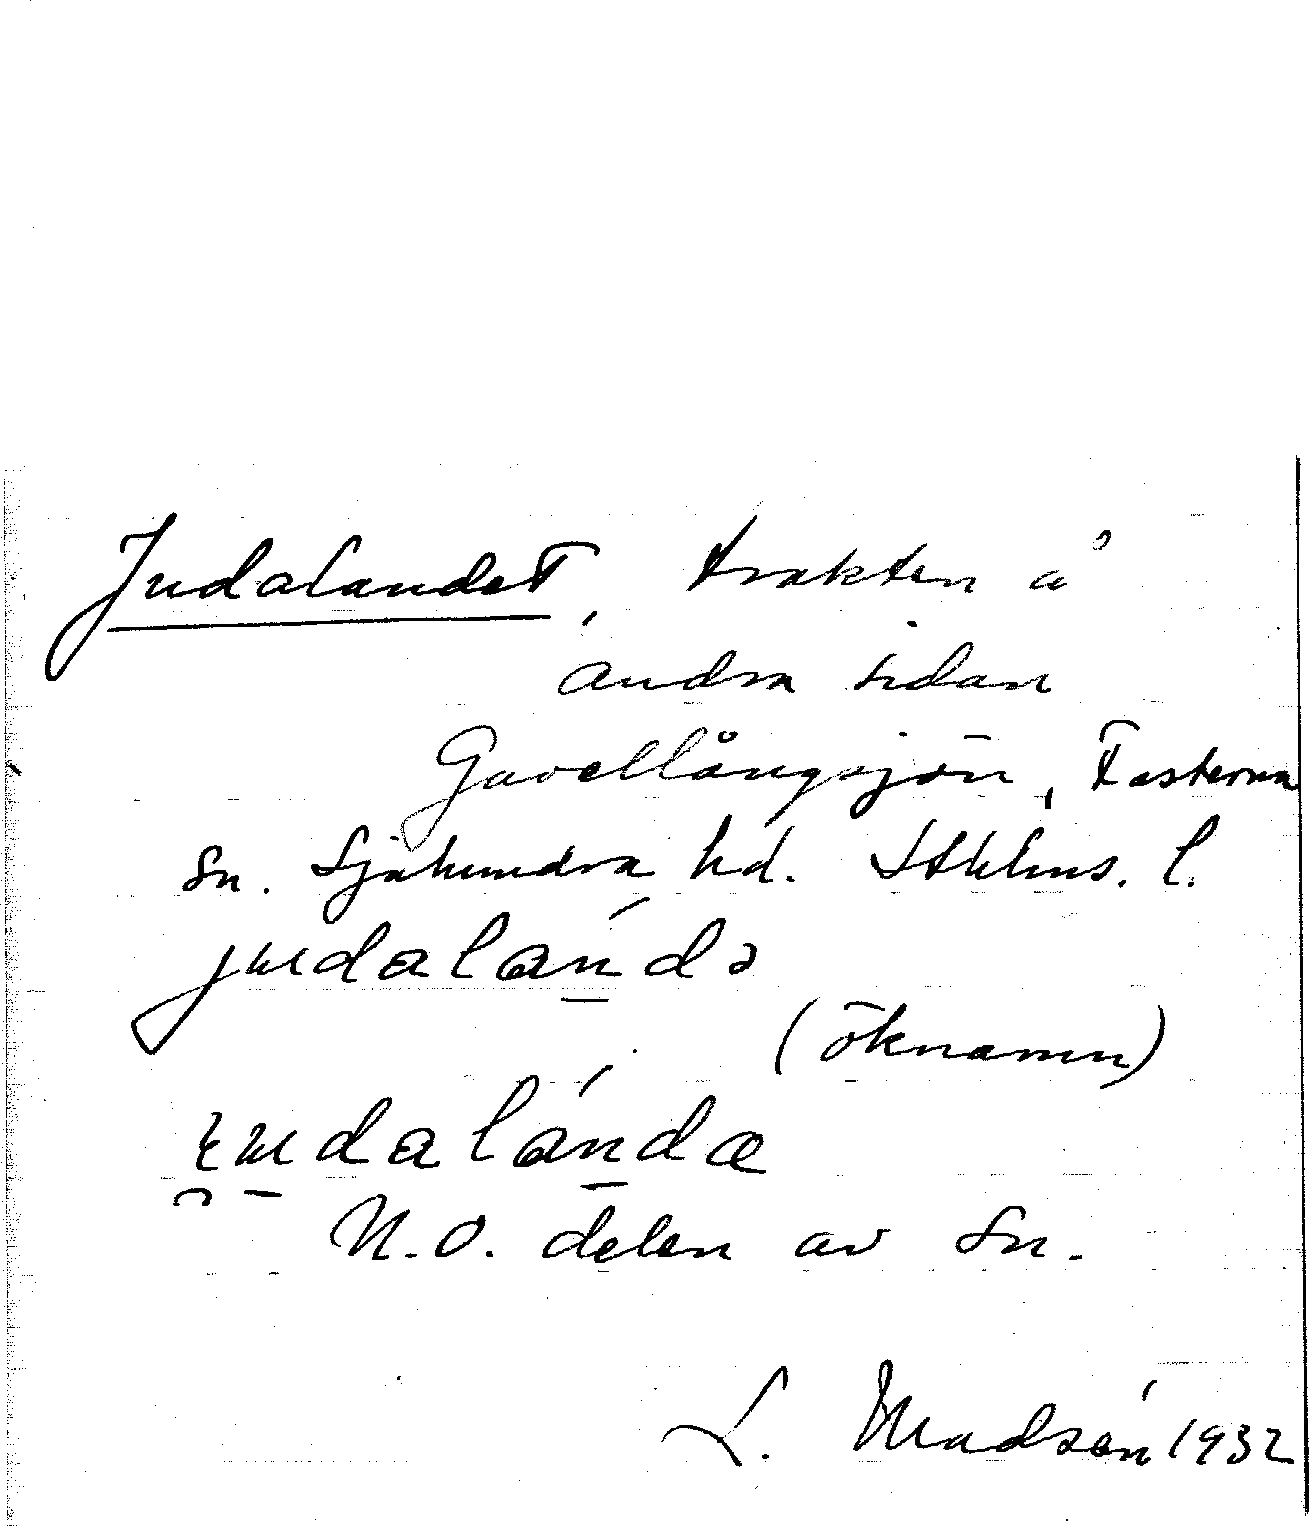 Judalandet, trakten å
andra sidan
Gavellångsjön, Fasterna
Sn. Sjuhundra hd. Sthlms. l.
judalándə
(öknamn)
udalándæ
N.O. delen av Sn.
L. Madsén 1932